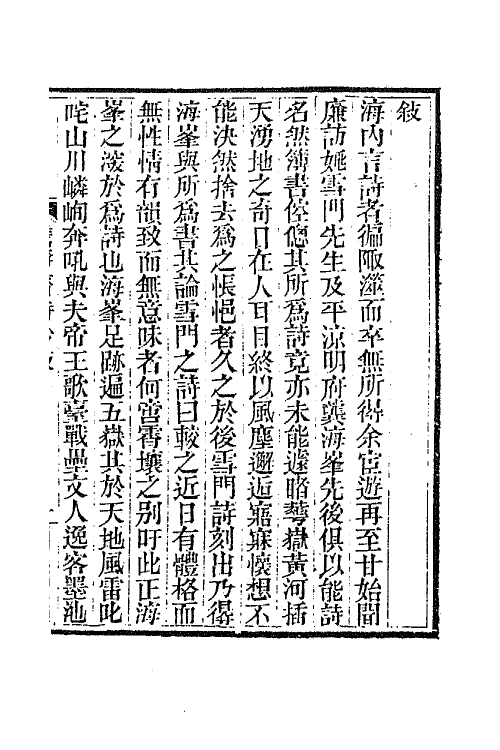 敍
海內言詩者徧陬澨而卒無所得余宦遊再至甘始聞
廉訪姚雪門先生及平涼明府龔海峯先後俱以能詩
名然簿書倥傯其所爲詩竟亦未能遽睹華嶽黃河插
天湧地之奇日在人耳目終以風塵邂逅寤寐懷想不
能決然捨去爲之悵悒者久之於後雪門詩刻出乃得
海峯與所爲書其論雪門之詩曰較之近日有體格而
無性情有韻致而無意味者何啻霄壤之别吁此正海
峯之深於爲詩也海峯足跡遍五嶽其於天地風雷叱
咤山川嶙峋奔吼與夫帝王歌臺戰壘文人逸客墨池